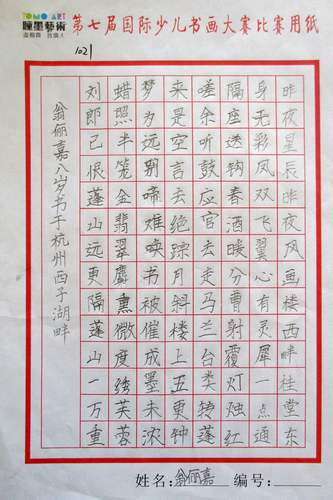 TOMO ART
瞳墨藝術
第七届国际少儿书画大赛比赛用纸
1021
昨夜星辰昨夜风画楼西畔桂堂东
身无彩凤双飞翼心有灵犀一点通
隔座送钩春酒暖分曹射覆灯烛红
嗟余听鼓应官去走马兰台类转蓬
来是空言去绝踪月斜楼上五更钟
梦为远别啼难唤书被催成墨未浓
蜡照半笼金翡翠麝熏微度绣芙蓉
刘郎已恨蓬山远更隔蓬山一万重
翁俪嘉八岁书于杭州西子湖畔
姓名:翁俪嘉 编号: